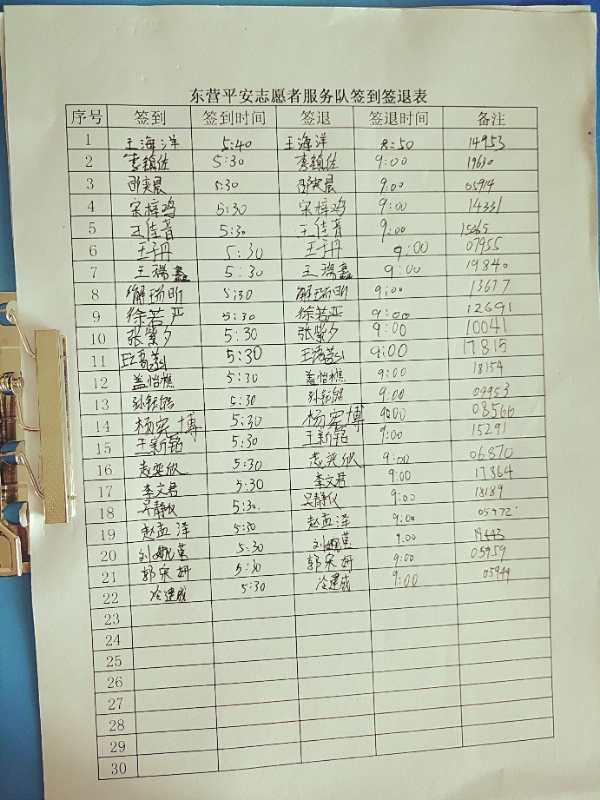 东营平安志愿者服务队签到签退表
序号 签到 签到时间 签退 签退时间 备注
1 王海洋 5:40 王海洋 8:50 14953
2 李镇佐 5:30 李镇佐 9:00
3 邵奕晨 5:30 邵奕晨 9:00 05914
4 宋梓鸣 5:30 宋梓鸣 9:00 14331
5 王佳音 5:30 王佳音 9:00
6 王子丹 5:30 王子丹 9:00 07955
7 王瑞鑫 5:30 王瑞鑫 9:00 19840
8 解瑞昕 5:30 解瑞昕 9:00 13677
9 徐若亚 5:30 徐若亚 9:00 12691
10 张紫夕 5:30 张紫夕 9:00 10041
11 5:30 9:00 17815
12 盖怡樵 5:30 盖怡樵 9:00 18154
13 5:30 9:00 09953
14 杨宗博 5:30 杨宗博 9:00 08566
15 王新铭 5:30 王新铭 9:00 15291
16 5:30 9:00 06870
17 李文君 5:30 李文君 9:00 17364
18 吴静仪 5:30 吴静仪 9:00 18189
19 赵孟泽 5:30 赵孟泽 9:00
20 5:30 9:00
21 郭宋妍 5:30 郭宋妍 9:00 05959
22 冷建成 5:30 冷建成 9:00
23
24
25
26
27
28
29
30